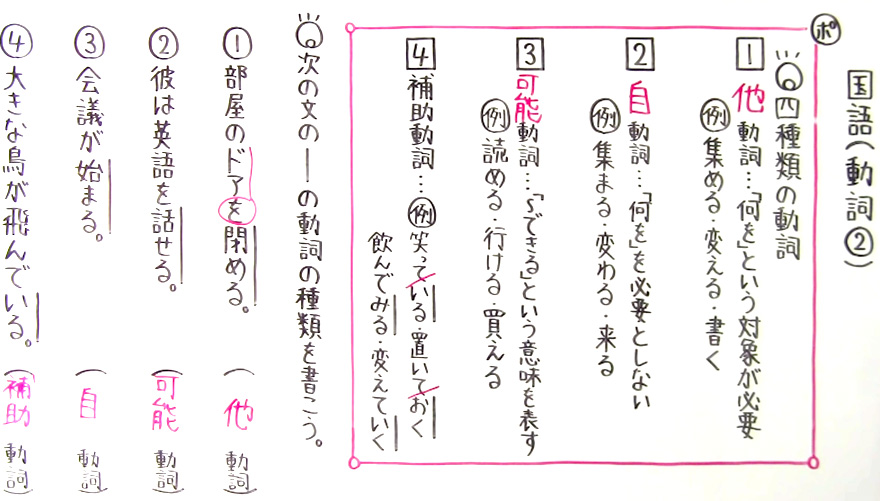 国語(動詞②)
ポ
四種類の動詞
1 他動詞…「何を」という対象が必要
例 集める・変える・書く
2 自動詞…「何を」を必要としない
例 集まる・変わる・来る
3 可能動詞…「~できる」という意味を表す
例 読める・行ける・買える
4 補助動詞…例 笑っている・置いておく
飲んでみる・変えていく
次の文の―の動詞の種類を書こう。
① 部屋のドアを閉める。(他動詞)
② 彼は英語を話せる。(可能動詞)
③ 会議が始まる。(自動詞)
④ 大きな鳥が飛んでいる。(補助動詞)